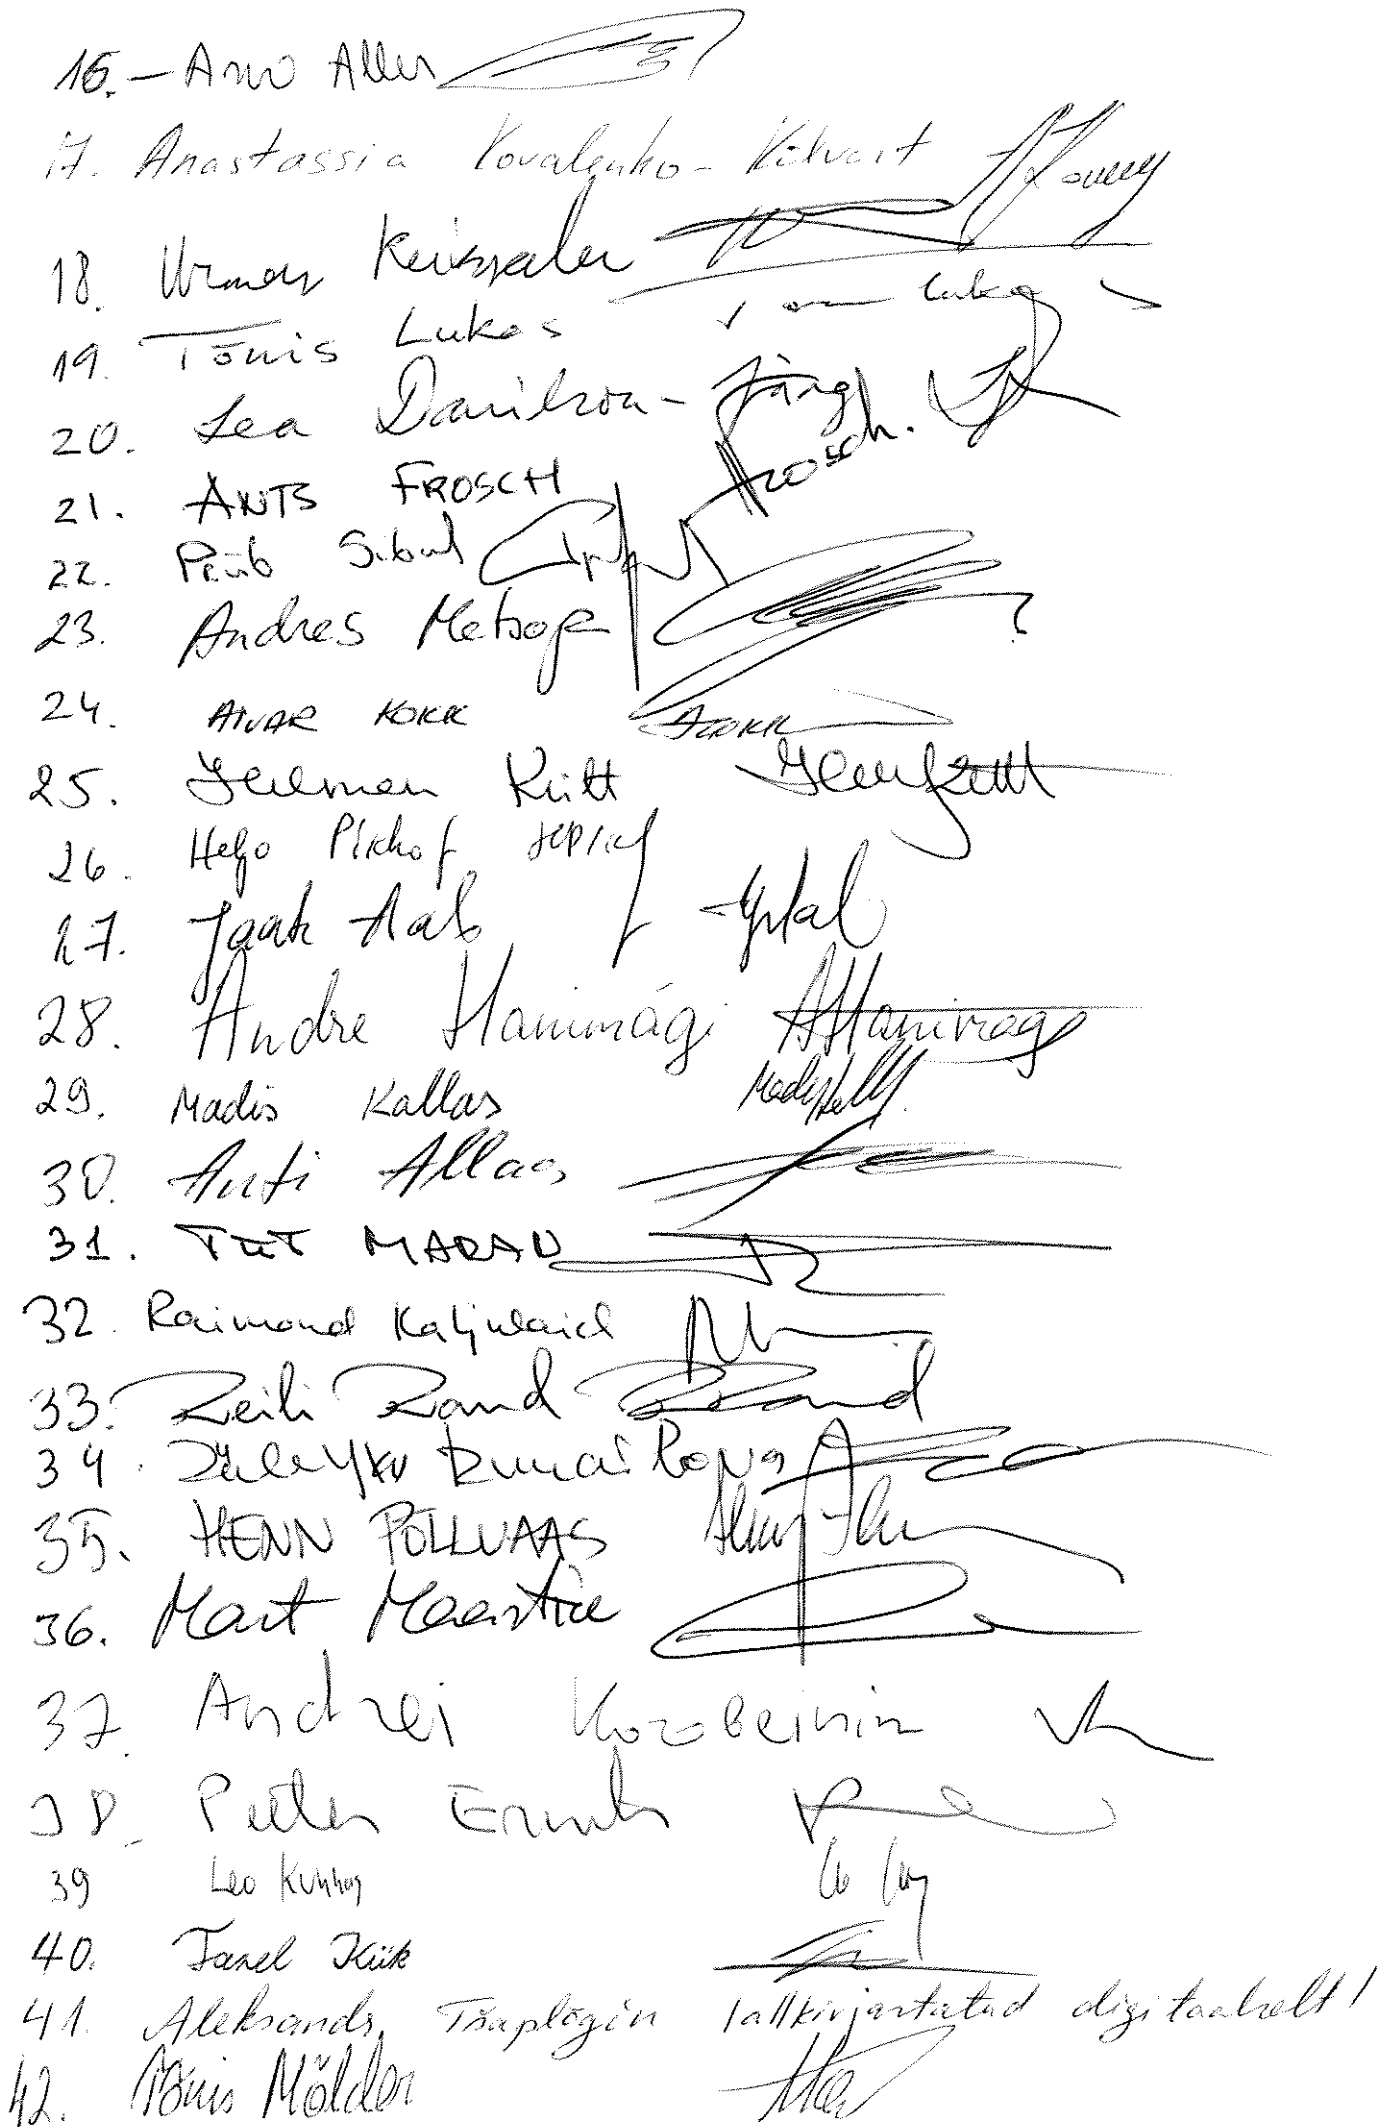 16. - Arvo Aller
17. Anastassia Kovalenko-Kõlvart
18. Urmas Kruuse
19. Tõnis Lukas Tõnis Lukas
20. Lea Danilson-Järg
21. ANTS FROSCH Frosch.
22. Priit Sibul
23. Andres Metsoja
24. AIVAR KOKK AKOKK
25. Helmen Kütt
26. Heljo Pikhof
27. Jaak Aab
28. Andre Hanimägi AHanimägi
29. Madis Kallas
30. Anti Allas
31. TIIT MARAN
32. Raimond Kaljulaid
33. Reili Rand RRand
34. Züleyxa Izmailova
35. HENN PÕLLUAAS
36. Mart Maastik
37. Andrei Korobeinik
38. Peeter Ernits
39 Leo Kunnas
40. Tanel Kiik
41. Aleksandr Tšaplõgin /allkirjastatud digitaalselt/
42. Tõnis Mölder